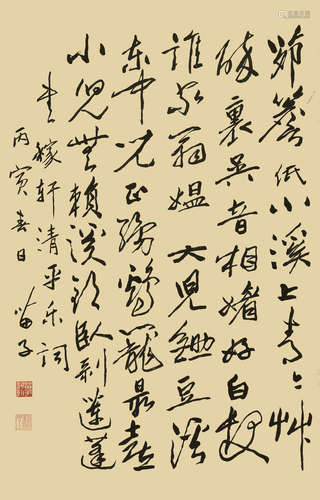 茆簷低小溪上青々艸
醉裏吳音相媚好白髮
誰家翁媼大兒鋤豆溪
東中兒正織鷄籠最喜
小兒無賴溪頭臥剝蓮蓬
書稼軒清平樂詞
丙寅春日 苗子